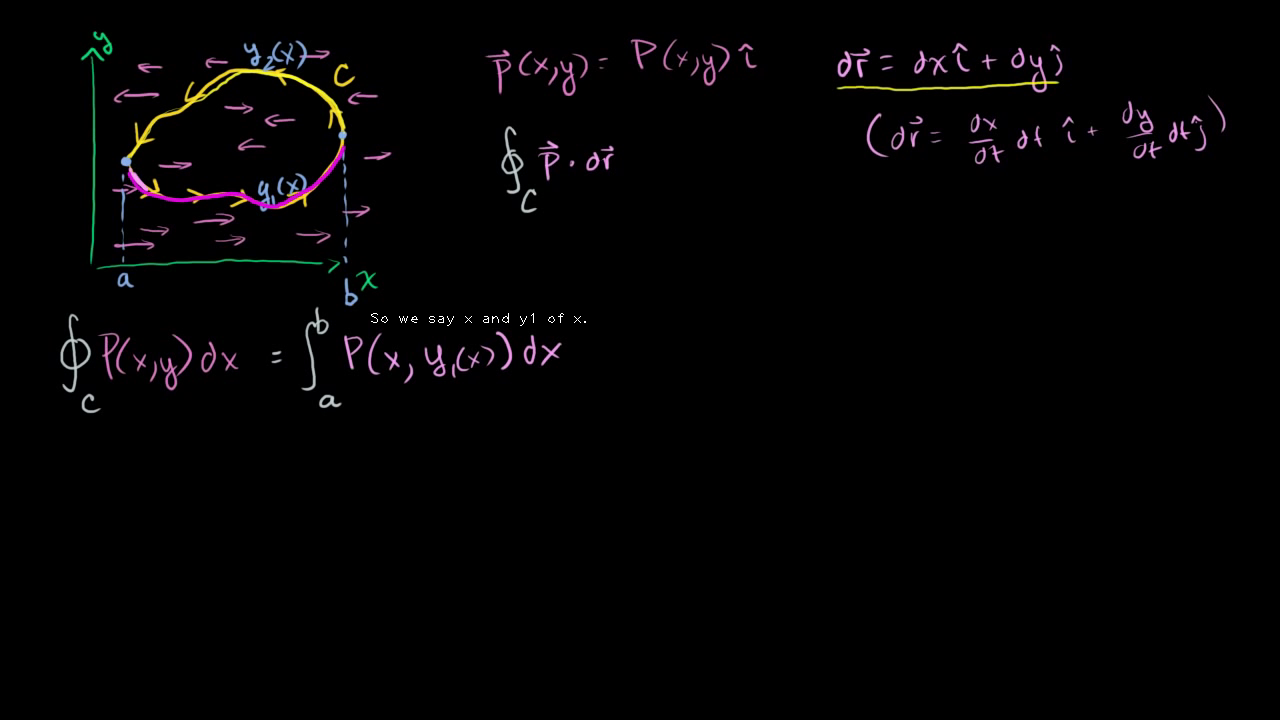 y
y₂(x)
C
y₁(x)
a
b
x
p⃗(x,y) = P(x,y) î
∮_C p⃗ · dr⃗
dr⃗ = dx î + dy ĵ
(dr⃗ = dx/dt dt î + dy/dt dt ĵ)
So we say x and y1 of x.
∮_C P(x,y) dx = ∫_a^b P(x, y₁(x)) dx